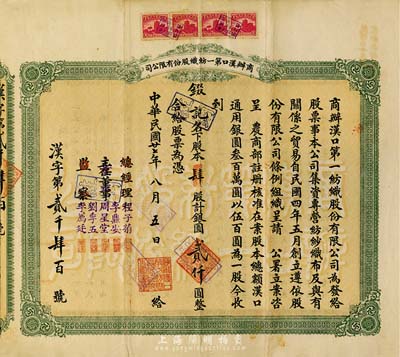 商辦漢口第一紡織股份有限公司
商辦漢口第一紡織股份有限公司為發給
股票事本公司集資專營紡紗織布及與有
關係之貿易自民國四年五月創立遵依股
份有限公司條例組織呈請 公署立案咨
呈 農商部註册核准在案股本總額漢口
通用銀圓叁百萬圓以伍百圓為一股今收
到
鍛記名下股本肆股計銀圓貳仟圓整
合給股票為憑
中華民國廿五年八月五日 給
總經理 程子菊
主任董事 李鼎安
周星堂
監察 劉季五
李萬廷
漢字第貳千肆百 號
上海陽明拍賣